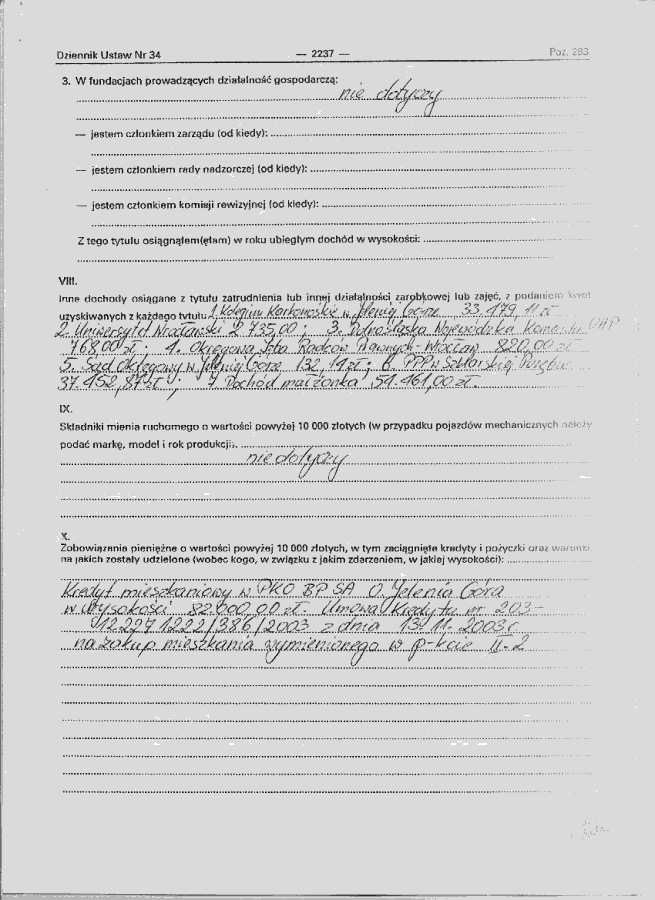 Dziennik Ustaw Nr 34 — 2237 — Poz. 283
3. W fundacjach prowadzących działalność gospodarczą:
nie dotyczy
— jestem członkiem zarządu (od kiedy):
— jestem członkiem rady nadzorczej (od kiedy):
— jestem członkiem komisji rewizyjnej (od kiedy):
Z tego tytułu osiągnąłem(ęłam) w roku ubiegłym dochód w wysokości:
VIII.
Inne dochody osiągane z tytułu zatrudnienia lub innej działalności zarobkowej lub zajęć, z podaniem kwot
uzyskiwanych z każdego tytułu 1. Kolegium Karkonoskie w Jeleniej Górze 33.479,11 zł
2. Uniwersytet Wrocławski 2 735,00; 3. Dolnośląska Wojewódzka Komenda OHP
768,00 zł; 4. Okręgowa Izba Radców Prawnych-Wrocław 820,00 zł
5. Sąd Okręgowy w Jeleniej Górze 132,14 zł; 6. PPP w Szklarskiej Porębie
37.452,87 zł; 7. Dochód małżonka 54.461,00 zł.
IX.
Składniki mienia ruchomego o wartości powyżej 10 000 złotych (w przypadku pojazdów mechanicznych należy
podać markę, model i rok produkcji):
nie dotyczy
X.
Zobowiązania pieniężne o wartości powyżej 10 000 złotych, w tym zaciągnięte kredyty i pożyczki oraz warunki,
na jakich zostały udzielone (wobec kogo, w związku z jakim zdarzeniem, w jakiej wysokości):
Kredyt mieszkaniowy w PKO BP SA O. Jelenia Góra
w wysokości 82.000,00 zł. Umowa Kredytu nr 203-
12227 1222/386/2003 z dnia 13.11.2003 r.
na zakup mieszkania wymienionego w p-kcie II.2